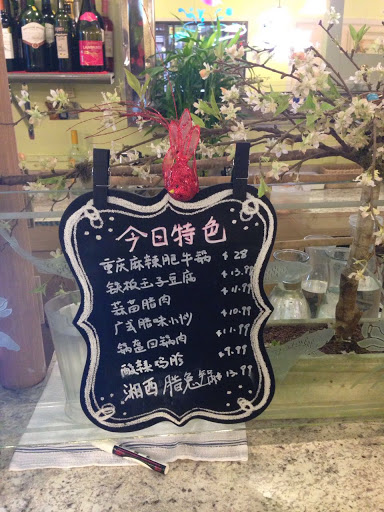 今日特色
重庆麻辣肥牛锅 $28
铁板玉子豆腐 $13.99
蒜苗腊肉 $11.99
广式腊味小炒 $10.99
锅盔回锅肉 $11.99
酸辣鸡胗 $9.99
湘西腊 $13.99